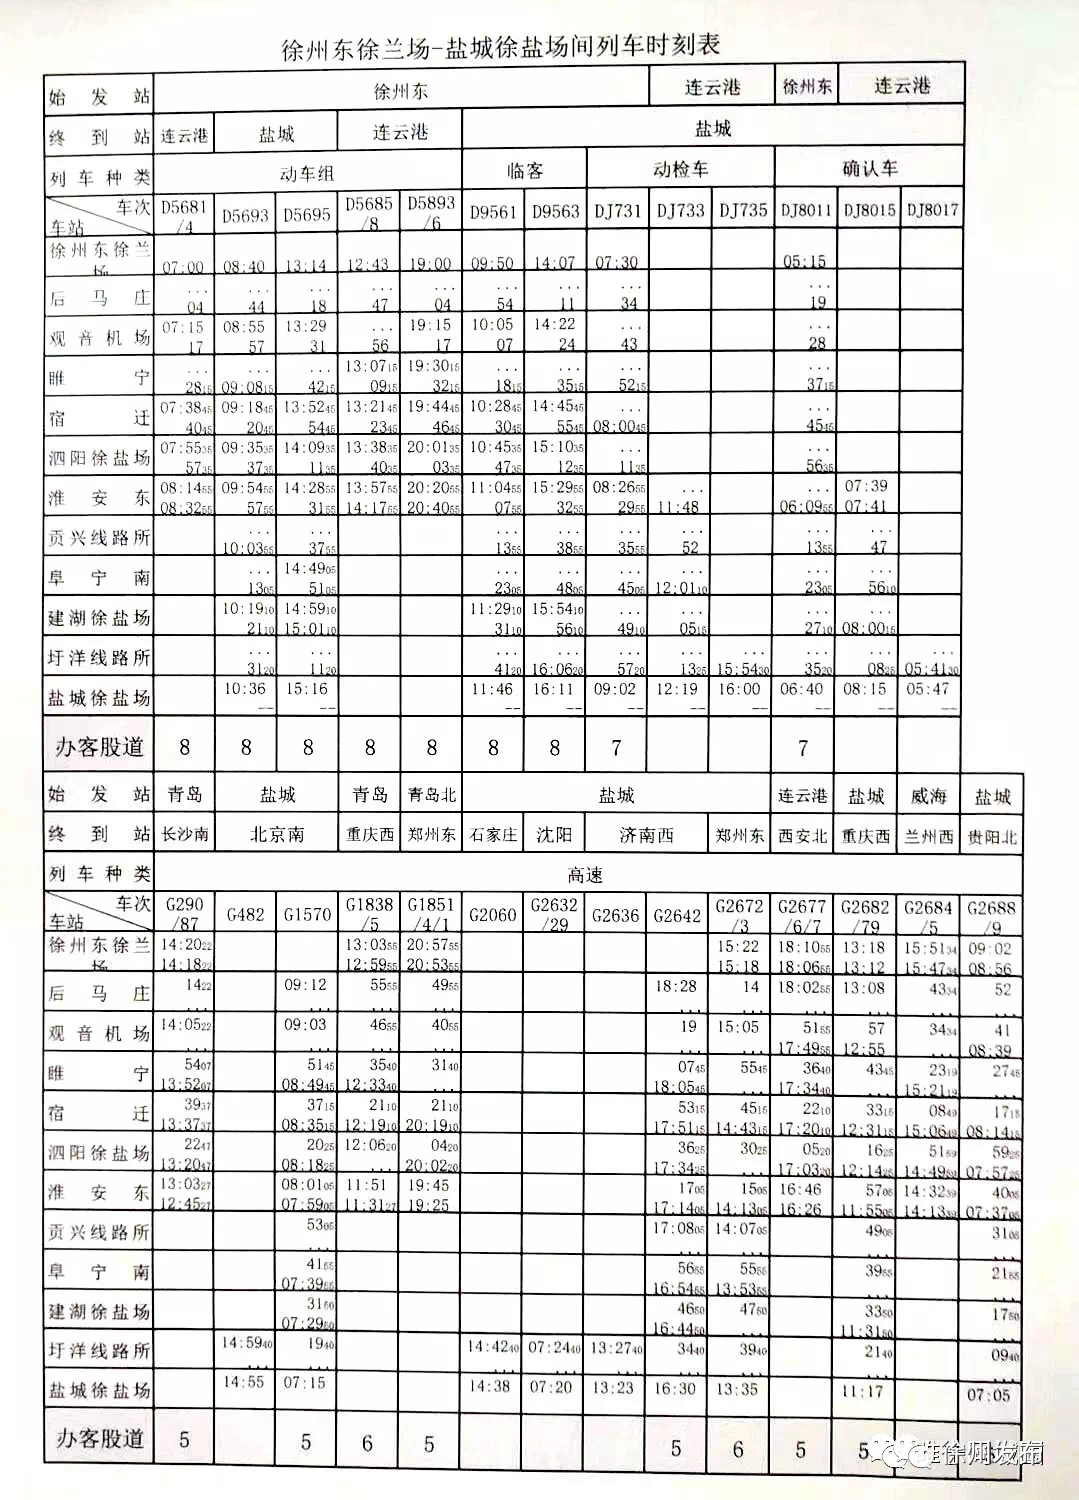 徐州东徐兰场-盐城徐盐场间列车时刻表
始发站 徐州东 连云港 徐州东 连云港
终到站 连云港 盐城 连云港 盐城
列车种类 动车组 临客 动检车 确认车
车次 D5681/4 D5693 D5695 D5685/8 D5893/6 D9561 D9563 DJ731 DJ733 DJ735 DJ8011 DJ8015 DJ8017
车站
徐州东徐兰场 07:00 08:40 13:14 12:43 19:00 09:50 14:07 07:30 05:15
... ... ... ... ... ... ... ... ...
后马庄 04 44 18 47 04 54 11 34 19
07:15 08:55 13:29 ... 19:15 10:05 14:22 ... ...
观音机场 17 57 31 56 17 07 24 43 28
... ... ... 13:0715 19:3015 ... ... ... ...
睢宁 2815 09:0815 4215 0915 3215 1815 3515 5215 3715
07:3845 09:1845 13:5245 13:2145 19:4445 10:2845 14:4545 ... ...
宿迁 4045 2045 5445 2345 4645 3045 5545 08:0045 4545
07:5535 09:3535 14:0935 13:3835 20:0135 10:4535 15:1035 ... ...
泗阳徐盐场 5735 3735 1135 4035 0335 4735 1235 1135 5635
08:1455 09:5455 14:2855 13:5755 20:2055 11:0455 15:2955 08:2655 ... ... 07:39
淮安东 08:3255 5755 3155 14:1755 20:4055 0755 3255 2955 11:48 06:0955 07:41
... ... ... ... ... ... ... ...
贡兴线路所 10:0355 3755 1355 3855 3555 52 1355 47
... 14:4905 ... ... ... ... ... ...
阜宁南 1305 5105 2305 4805 4505 12:0110 2305 5610
10:1910 14:5910 11:2910 15:5410 ... ... ... ...
建湖徐盐场 2110 15:0110 3110 5610 4910 0515 2710 08:0015
... ... ... ... ... ... ... ... ... ...
圩洋线路所 3120 1120 4120 16:0620 5720 1325 15:5430 3520 0825 05:4130
盐城徐盐场 10:36 15:16 11:46 16:11 09:02 12:19 16:00 06:40 08:15 05:47
-- -- -- -- -- -- -- -- -- --
办客股道 8 8 8 8 8 8 8 7 7
始发站 青岛 盐城 青岛 青岛北 盐城 连云港 盐城 威海 盐城
终到站 长沙南 北京南 重庆西 郑州东 石家庄 沈阳 济南西 郑州东 西安北 重庆西 兰州西 贵阳北
列车种类 高速
车次 G290/87 G482 G1570 G1838/5 G1851/4/1 G2060 G2632/29 G2636 G2642 G2672/3 G2677/6/7 G2682/79 G2684/5 G2688/9
车站
徐州东徐兰场 14:2022 13:0355 20:5755 15:22 18:1055 13:18 15:5134 09:02
14:1822 12:5955 20:5355 15:18 18:0655 13:12 15:4734 08:56
后马庄 1422 09:12 5555 4955 18:28 14 18:0255 13:08 4334 52
... ... ... ... ... ... ... ... ... ...
观音机场 14:0522 09:03 4655 4055 19 15:05 5155 57 3434 41
... ... ... ... ... ... 17:4955 12:55 ... 08:39
睢宁 5407 5145 3540 3140 0745 5545 3640 4345 2319 2745
13:5207 08:4945 12:3340 ... 18:0545 ... 17:3440 ... 15:2119 ...
宿迁 3937 3715 2110 2110 5315 4515 2210 3315 0849 1715
13:3737 08:3515 12:1910 20:1910 17:5115 14:4315 17:2010 12:3115 15:0649 08:1415
泗阳徐盐场 2247 2025 12:0620 0420 3625 3025 0520 1625 5159 5925
13:2047 08:1825 ... 20:0220 17:3425 ... 17:0320 12:1425 14:4959 07:5725
淮安东 13:0327 08:0105 11:51 19:45 1705 1505 16:46 5705 14:3239 4005
12:4527 07:5905 11:3127 19:25 17:1405 14:1305 16:26 11:5505 14:1339 07:3705
贡兴线路所 5305 17:0805 14:0705 4905 3105
... ... ... ... ...
阜宁南 4155 5655 5555 3955 2155
07:3955 16:5455 13:5355 ... ...
建湖徐盐场 3150 4650 4750 3350 1750
07:2950 16:4450 ... 11:3150 ...
圩洋线路所 14:5940 1940 14:4240 07:2440 13:2740 3440 3940 2140 0940
... ... ... ... ... ... ... ... ...
盐城徐盐场 14:55 07:15 14:38 07:20 13:23 16:30 13:35 11:17 07:05
办客股道 5 5 6 5 5 6 5 5